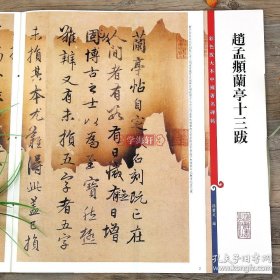 趙孟頫蘭亭十三跋
彩色放大本中國著名碑帖
蘭亭帖自定武石刻既亡在
人間者有數有日減無日增
故博古之士以為至寶然極
難辨又有未損五字者五字
未損其本尤難得此蓋已損